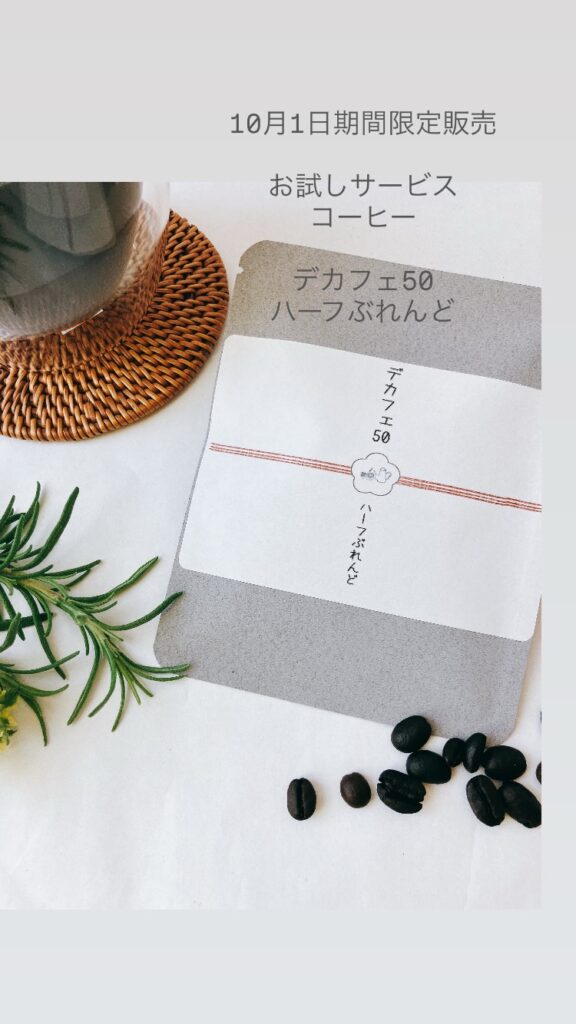 10月1日期間限定販売
お試しサービス
コーヒー
デカフェ50
ハーフぶれんど
デカフェ50
ハーフぶれんど